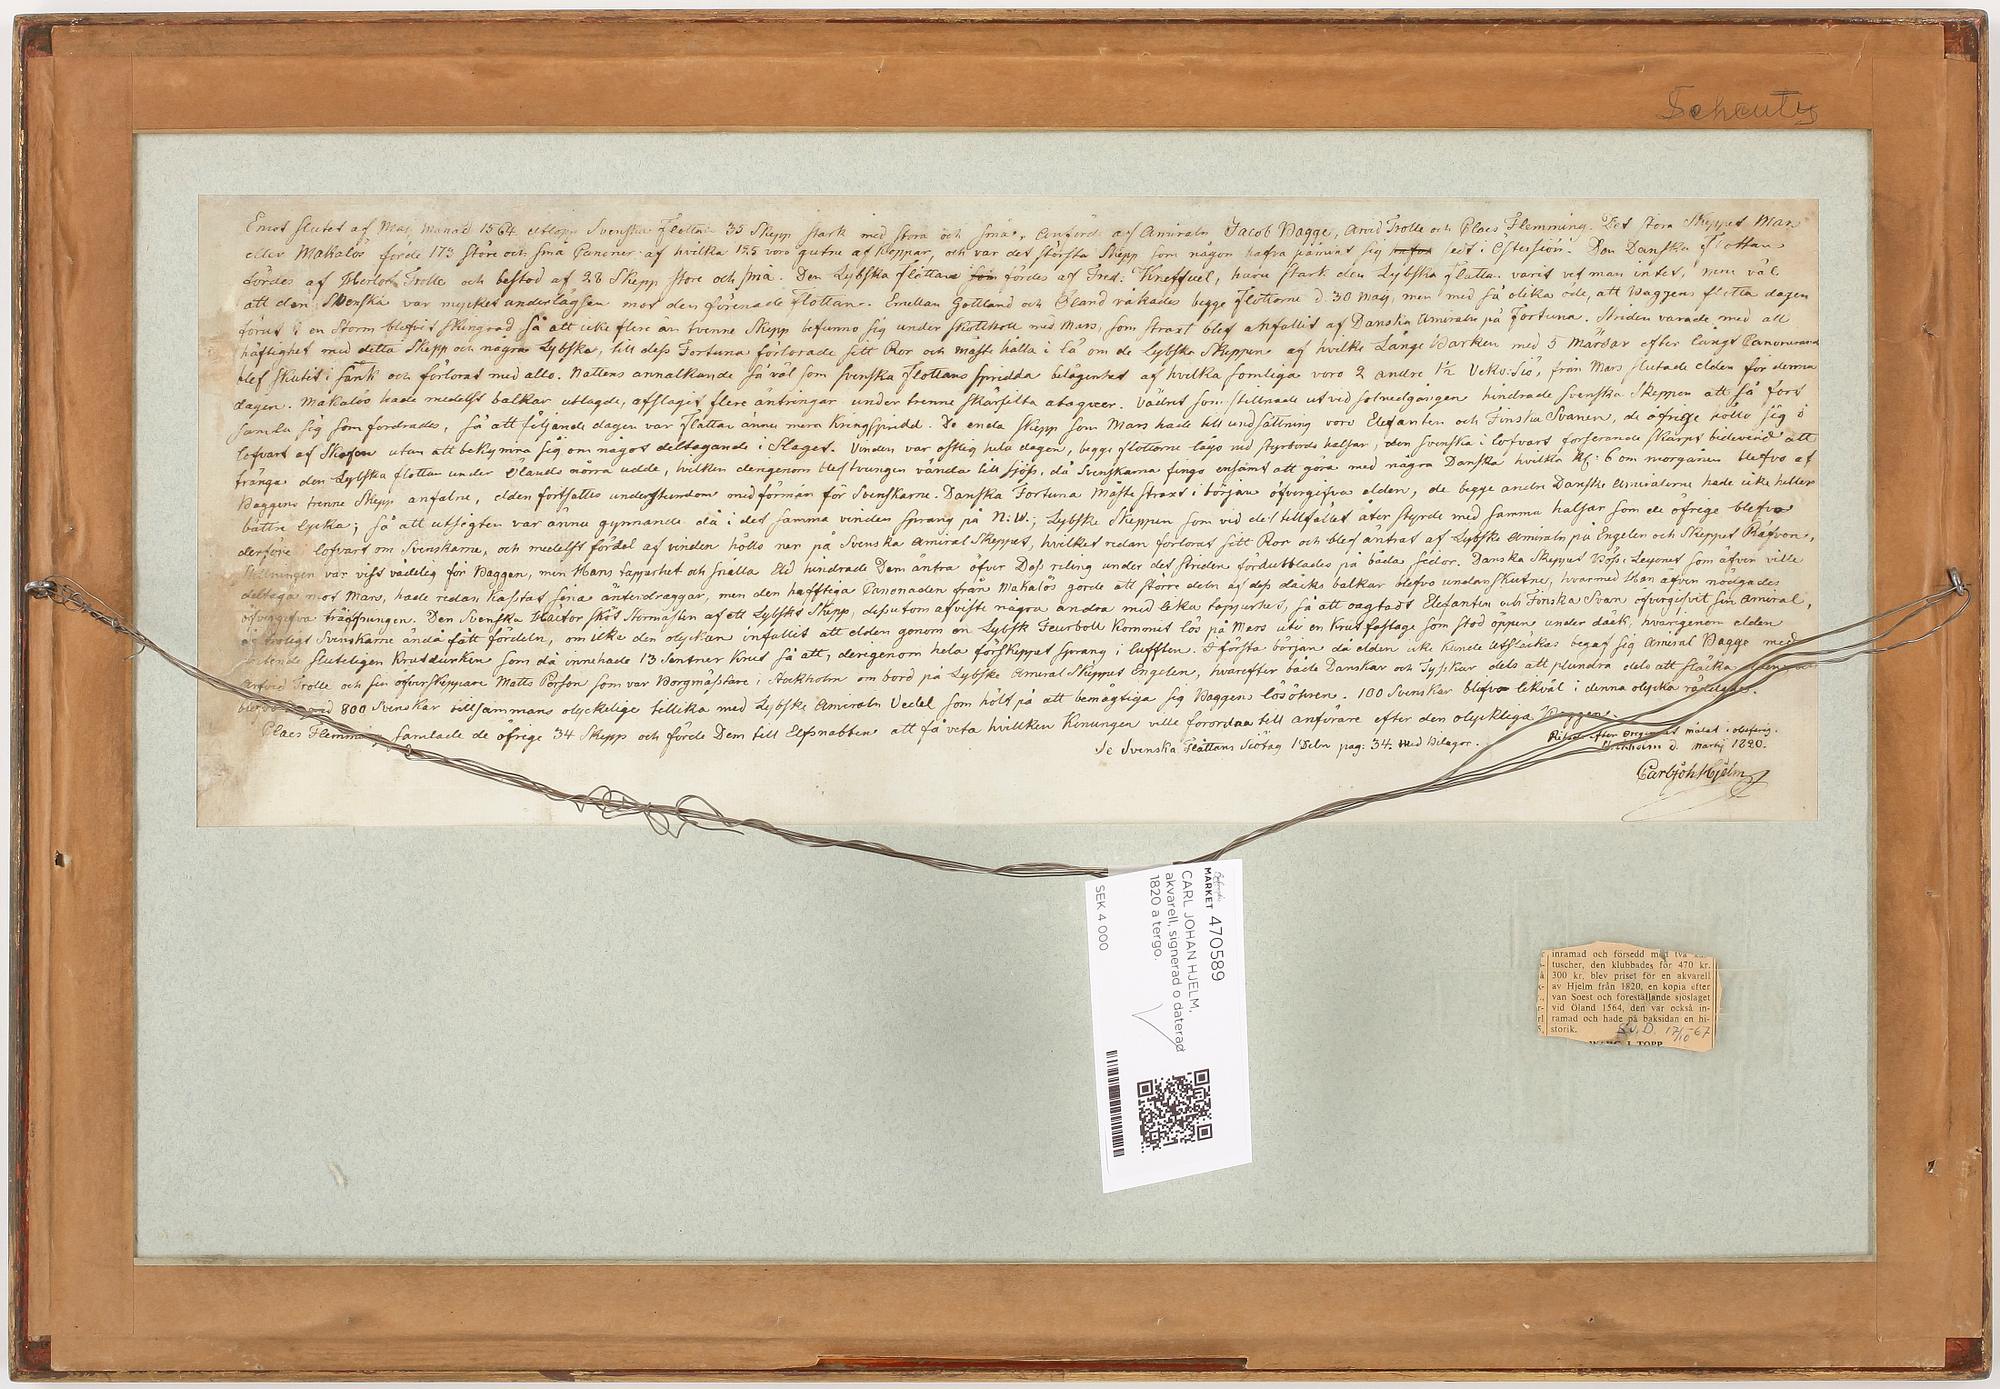 Scheutz
Emot slutet af Maj Månad 1564 utlopp Svenska Flottan 35 Skepp stark med stora och små, anförd af Amiraln Jacob Bagge, Arvid Trolle och Claes Flemming. Det stora Skeppet Mars
eller Makalös förde 173 större och små Canoner af hvilka 125 voro gutne af Koppar, och var det största Skepp som någon hafva påmint sig sedt i Östersiön. Den Danska flottan
fördes af Herlof Trolle och bestod af 28 Skepp store och små. Den Lybska flottan fördes af Fred: Kneffuel, huru stark den Lybska Flottan varit vet man intet, men väl
att den Svenska var mycket underlägsen mot den förenade Flottan. Emellan Gottland och Öland råkades begge Flottorne d. 30 Maj, men med så olika öde, att Baggens flotta dagen
förut i en Storm blefvit skingrad så att icke flere än trenne Skepp befunno sig under skotthåll med Mars, som straxt blef anfallit af Danska Amiraln på Fortuna. Striden varade med all
häftighet med detta Skepp och några Lybska, till dess Fortuna förlorade sitt Ror och måste hålla i lä om de Lybska Skeppen af hvilka Långe Barken med 5 Mårdar efter långt Canonerand
blef skutit i sank och förlorat med allo. Nattens annalkande så väl som svenska Flottans spridda belägenhet af hvilka somliga voro 2 andre 1½ Veko: Siö, från Mars slutade elden för denna
dagen. Makalös hade medelst balkar utlagde, afslagit flere äntringar under trenne skärfelta ataquer. Vädret som stillnade ut vid solnedgången hindrade Svenska Skeppen att så fort
samla sig som fordrades, så att följande dagen var Flottan ännu mera kringspridd. De enda Skepp som Mars hade till undsättning voro Elefanten och Finska Svanen, de öfrige höllo sig i
lofvart af utan att bekymra sig om något deltagande i Slaget. Vinden var ostlig hela dagen, begge flottorne lågo med styrbords halsar, den Svenska i lofvart forserande skarpt bidevind att
tränga den Lybska flottan under Ölands norra udde, hvilken derigenom blef tvungen vända till sjöss, då Svenskarna fingo ensamt att göra med några Danska hvilka Kl: 6 om morgonen blefvo af
Baggens trenne Skepp anfalne, elden fortsattes understundom med förmån för Svenskarne. Danska Fortuna måste straxt i början öfvergifva elden, de begge andre Danske Amiralerne hade icke heller
bättre lycka; så att utsigten var ännu gynnande då i det samma vinden sprang på N:W; Lybske Skeppen som vid det tillfället åter styrde med samma halsar som de öfrige blefvo
derföre i lofvart om Svenskarne, och medelst fördel af vinden höllo ner på Svenska Amiral Skeppet, hvilket redan förlorat sitt Ror och blef äntrat af Lybske Amiraln på Engelen och Skeppet Räfven,
Ställningen var visst vådelig för Baggen, men Hans tapperhet och snälla Eld hindrade Dem äntra öfver Dess reling under det striden fördubblades på båda sidor. Danska Skeppet Böss: Leyonet som äfven ville
deltaga mot Mars, hade redan kastat sina änterdraggar, men den häftiga Canonaden från Makalös gjorde att större deln af dess däcks balkar blefvo undanskutne, hvarmed Han äfven nödgades
öfvergifva träffningen. Den Svenska Hector sköt Stormasten af ett Lybskt Skepp, dessutom afviste några andra med lika tapperhet, så att oagtadt Elefanten och Finska Svan öfvergifvit sin Amiral,
troligt Svenskarne ändå fått fördeln, om icke den olyckan infallit att elden genom en Lybsk Feurboll kommit lös på Mars uti en Krutfastage som stod öppen under däck, hvarigenom elden
slutligen Krutdurken som då innehade 13 Sentner Krut så att, derigenom hela förskeppet sprang i lufften. I första början då elden icke kunde utsläckas begaf sig Amiral Bagge med
Arfvid Trolle och sin öfverskeppare Matts Pärson som var Borgmästare i Stockholm om bord på Lybske Amiral Skeppet Engelen, hvarefter både Danskar och Tyskar dels att plundra dels att släcka
800 Svenskar tillsammans olyckelige tillika med Lybske Amiraln Vedel som höll på att bemägtiga sig Baggens lösören. 100 Svenskar blefvo likväl i denna olycka räddade.
Claes Flemming samlade de öfrige 34 Skepp och förde Dem till Elfsnabben att få veta hvilken Konungen ville förordna till anförare efter den olyckliga Baggen.
Se Svenska Flottans Siötåg 1 Deln pag: 34. med Bilagor.
Ritad efter Original målat i oljefärg.
Stockholm d. Martij 1820.
Carl Joh Hjelm
MARKET 470589
CARL JOHAN HJELM,
akvarell, signerad o daterad
1820 a tergo.
SEK 4 000
inramad och försedd med två
tuscher, den klubbades för 470 kr.
300 kr. blev priset för en akvarell
av Hjelm från 1820, en kopia efter
van Soest och föreställande sjöslaget
vid Öland 1564, den var också in-
ramad och hade på baksidan en hi-
storik.
Sv.D. 17/10-67
I TOPP